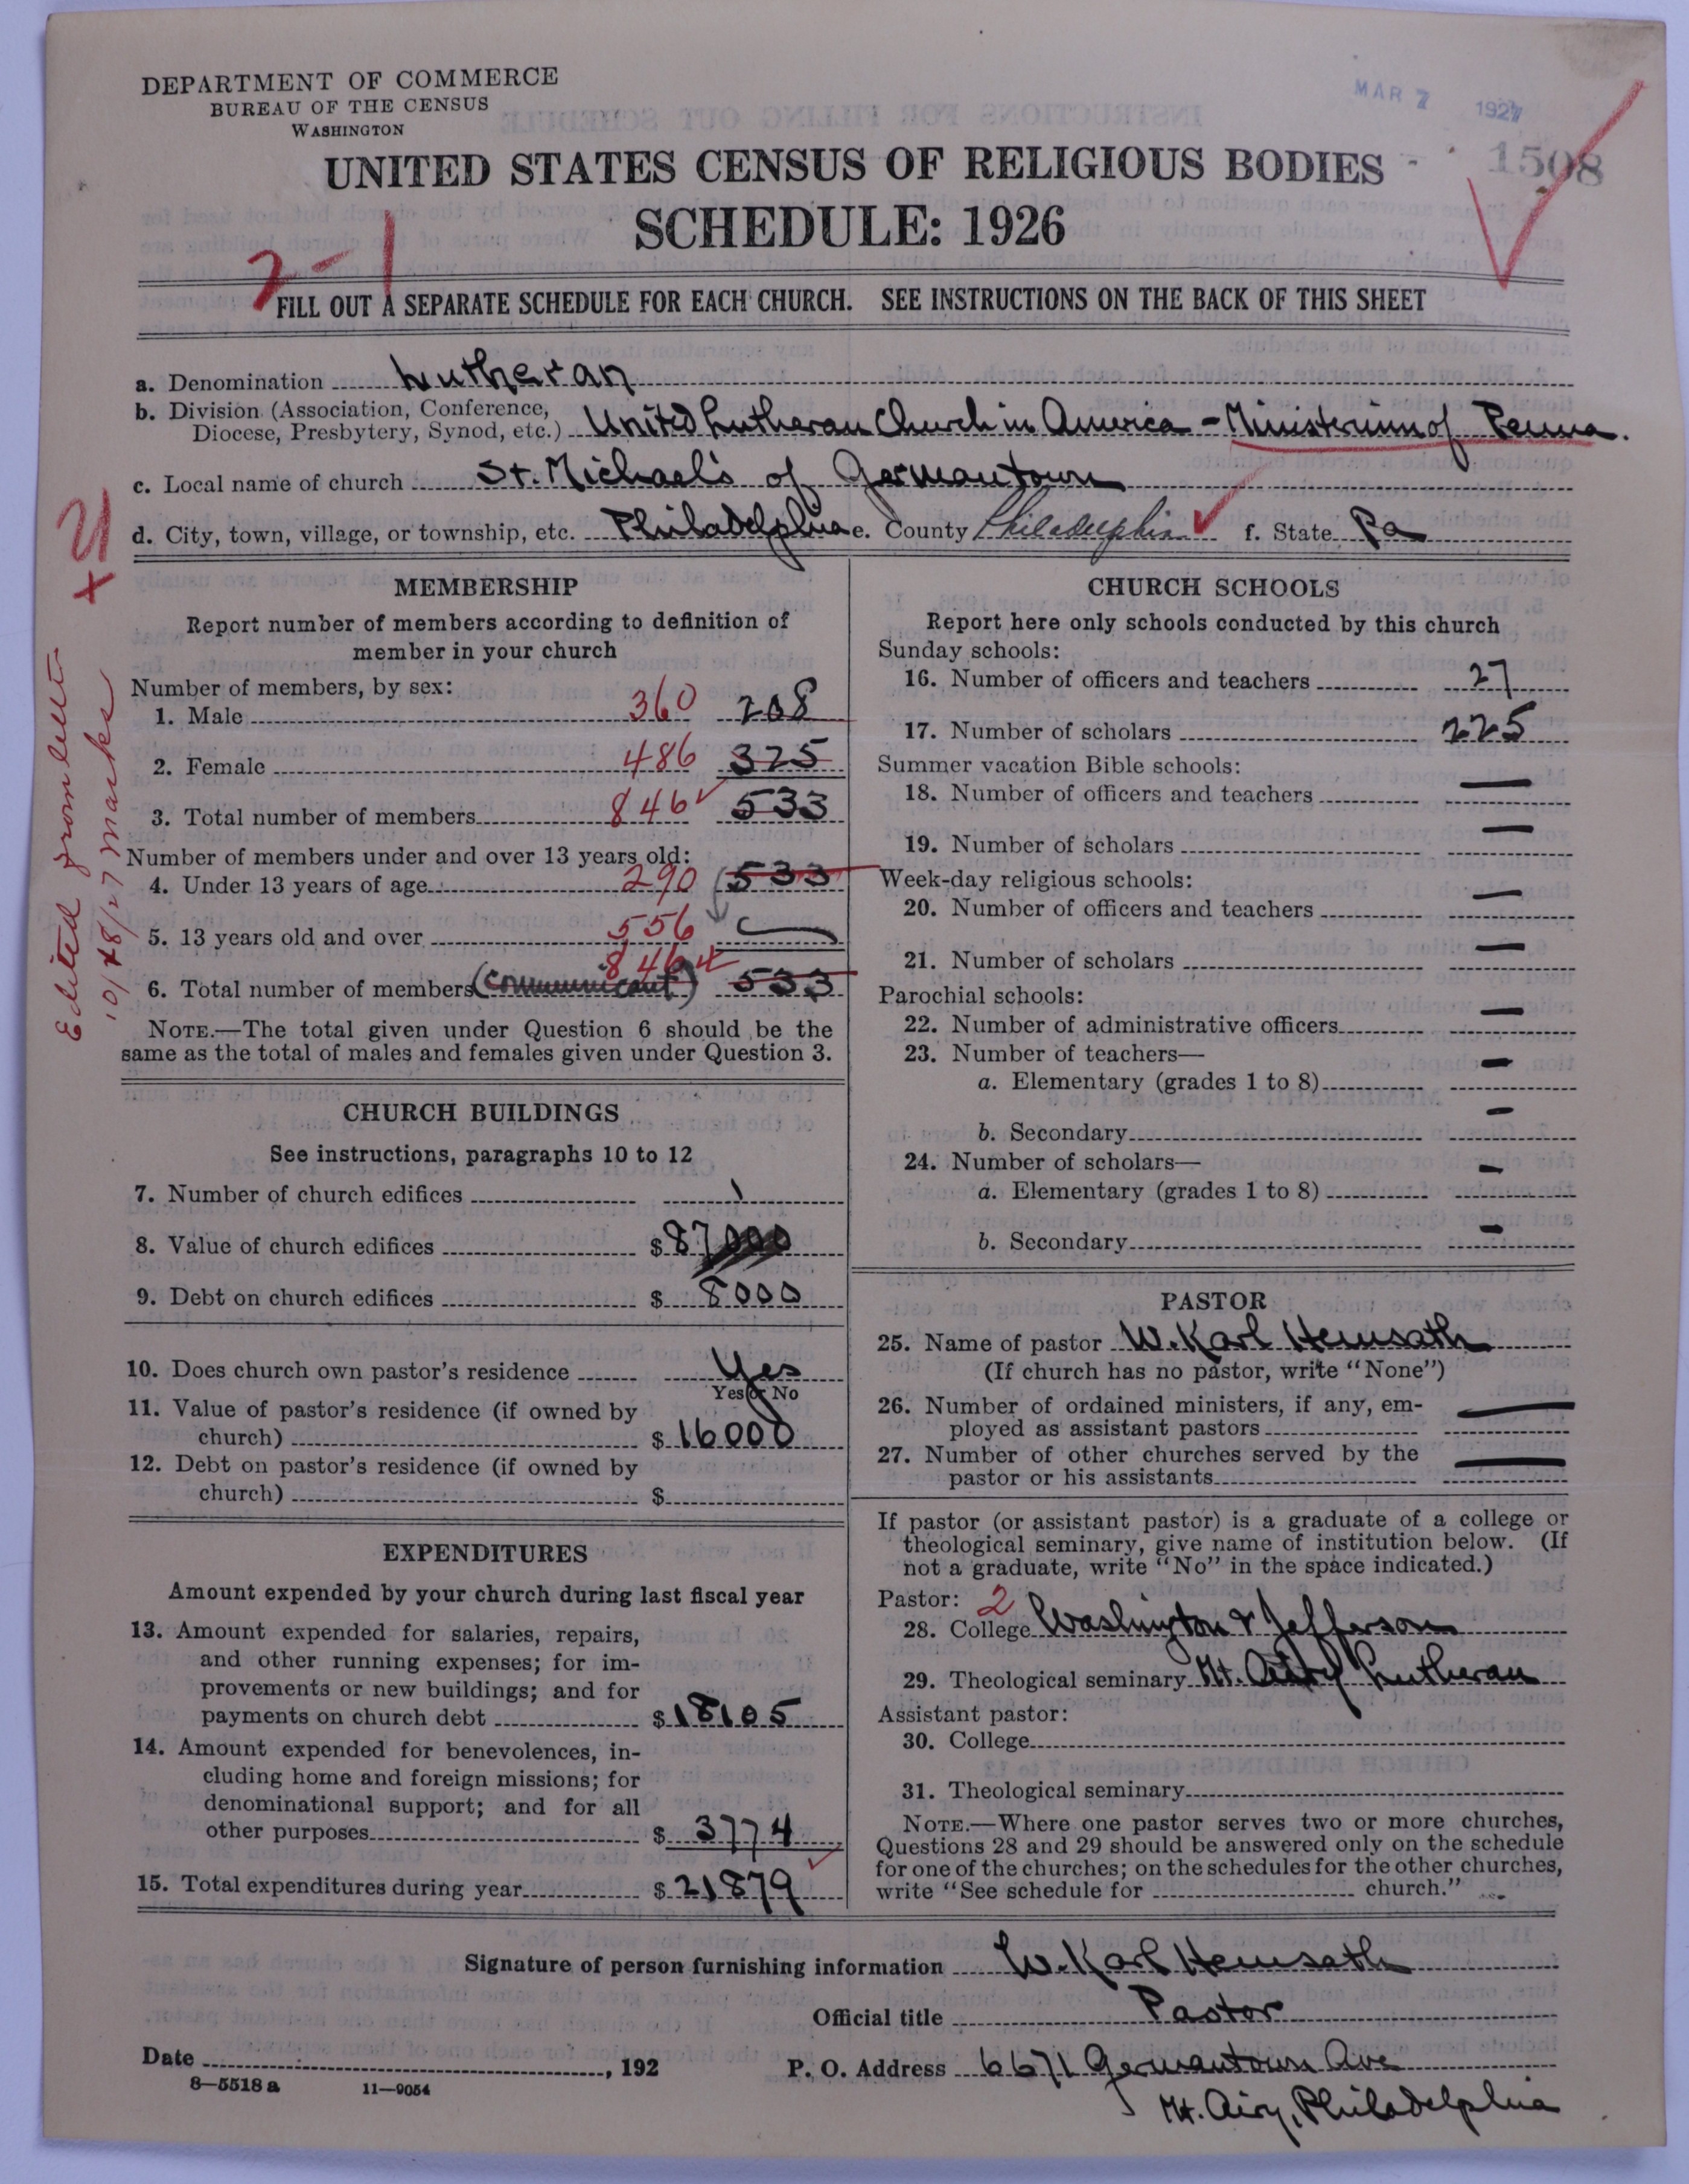 DEPARTMENT OF COMMERCE
BUREAU OF THE CENSUS
WASHINGTON
MAR 7 1927
1508
UNITED STATES CENSUS OF RELIGIOUS BODIES
SCHEDULE: 1926
2-1
FILL OUT A SEPARATE SCHEDULE FOR EACH CHURCH. SEE INSTRUCTIONS ON THE BACK OF THIS SHEET
a. Denomination Lutheran
b. Division (Association, Conference, Diocese, Presbytery, Synod, etc.) United Lutheran Church in America - Ministerium of Penna.
c. Local name of church St. Michael's of Germantown
d. City, town, village, or township, etc. Philadelphia e. County Philadelphia f. State Pa
Edited from letter
10/18/27 Marks
MEMBERSHIP
Report number of members according to definition of
member in your church
Number of members, by sex:
1. Male 360 208
2. Female 486 325
3. Total number of members 846 533
Number of members under and over 13 years old:
4. Under 13 years of age 290 533
5. 13 years old and over 556
6. Total number of members (communicant) 846 533
NOTE.—The total given under Question 6 should be the
same as the total of males and females given under Question 3.
CHURCH BUILDINGS
See instructions, paragraphs 10 to 12
7. Number of church edifices 1
8. Value of church edifices $ 87000
9. Debt on church edifices $ 8000
10. Does church own pastor's residence Yes
Yes or No
11. Value of pastor's residence (if owned by
church) $ 16000
12. Debt on pastor's residence (if owned by
church) $
EXPENDITURES
Amount expended by your church during last fiscal year
13. Amount expended for salaries, repairs,
and other running expenses; for im-
provements or new buildings; and for
payments on church debt $ 18105
14. Amount expended for benevolences, in-
cluding home and foreign missions; for
denominational support; and for all
other purposes $ 3774
15. Total expenditures during year $ 21879
CHURCH SCHOOLS
Report here only schools conducted by this church
Sunday schools:
16. Number of officers and teachers 27
17. Number of scholars 225
Summer vacation Bible schools:
18. Number of officers and teachers —
19. Number of scholars —
Week-day religious schools:
20. Number of officers and teachers —
21. Number of scholars —
Parochial schools:
22. Number of administrative officers —
23. Number of teachers—
a. Elementary (grades 1 to 8) —
b. Secondary —
24. Number of scholars—
a. Elementary (grades 1 to 8) —
b. Secondary —
PASTOR
25. Name of pastor W. Karl Hemsath
(If church has no pastor, write "None")
26. Number of ordained ministers, if any, em-
ployed as assistant pastors —
27. Number of other churches served by the
pastor or his assistants —
If pastor (or assistant pastor) is a graduate of a college or
theological seminary, give name of institution below. (If
not a graduate, write "No" in the space indicated.)
Pastor: 2
28. College Washington & Jefferson
29. Theological seminary Mt. Airy Lutheran
Assistant pastor:
30. College
31. Theological seminary
NOTE.—Where one pastor serves two or more churches,
Questions 28 and 29 should be answered only on the schedule
for one of the churches; on the schedules for the other churches,
write "See schedule for church."
Signature of person furnishing information W. Karl Hemsath
Official title Pastor
Date , 192
P. O. Address 6671 Germantown Ave
Mt. Airy, Philadelphia
8—5518 a 11—9054